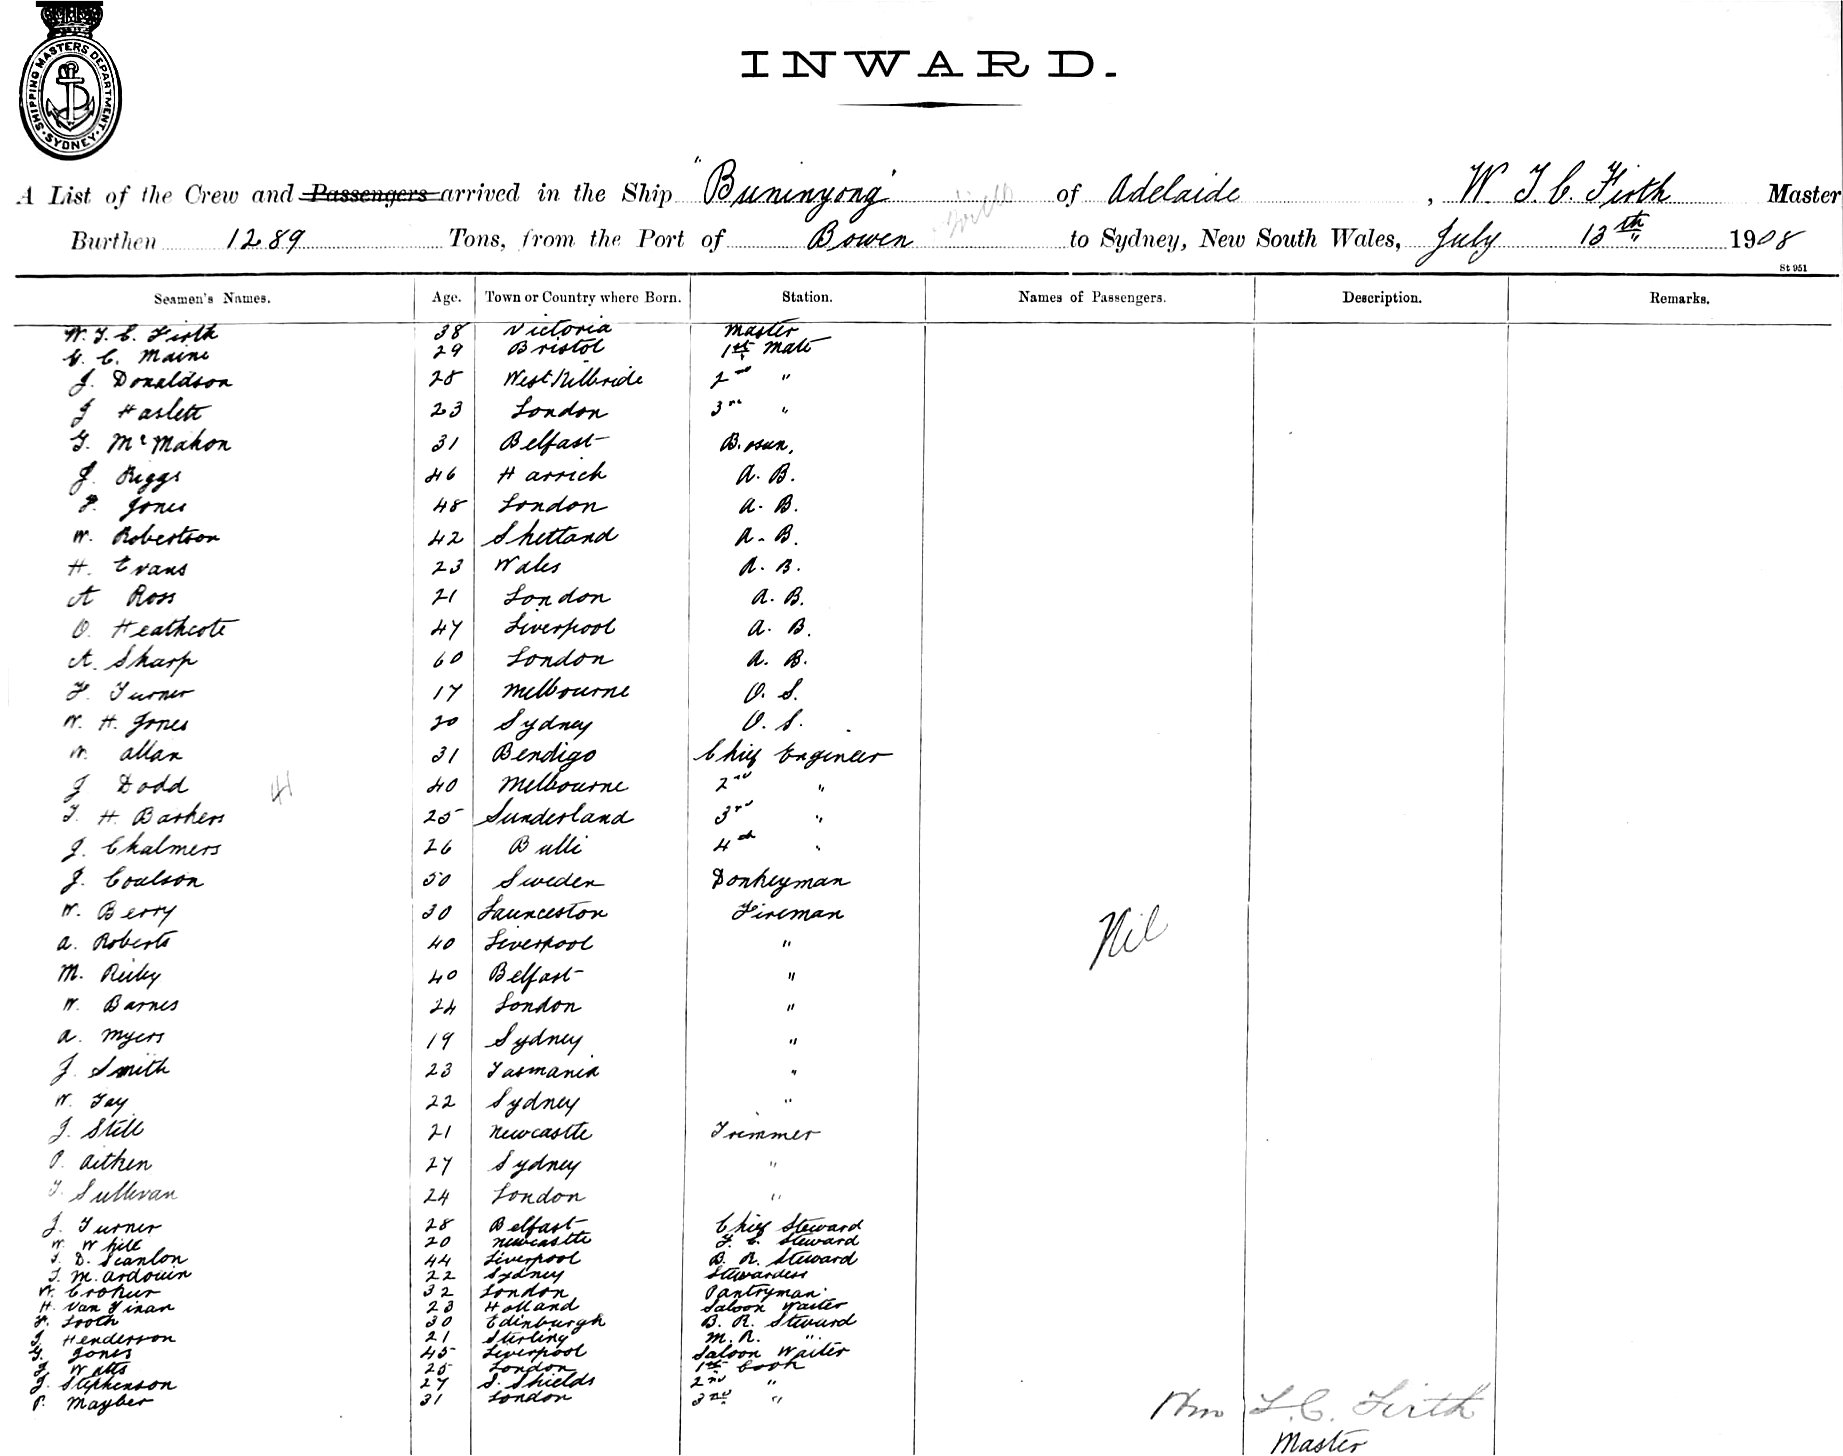 SHIPPING MASTERS DEPARTMENT. SYDNEY
INWARD.
A List of the Crew and Passengers arrived in the Ship "Buninyong" of Adelaide, W. T. C. Firth Master
Burthen 1289 Tons, from the Port of Bowen to Sydney, New South Wales, July 13th 1908
St 951
Seamen's Names. Age. Town or Country where Born. Station. Names of Passengers. Description. Remarks.
W. T. C. Firth 38 Victoria Master
G. C. Maine 29 Bristol 1st Mate
J. Donaldson 28 West Kilbride 2nd "
J Haslett 23 London 3rd "
G. McMahon 31 Belfast B.osun.
J. Riggs 46 Harrich A. B.
F. Jones 48 London A. B.
W. Robertson 42 Shetland A. B.
H. Evans 23 Wales A. B.
A Ross 21 London A. B.
O. Heathcote 47 Liverpool A. B.
A. Sharp 60 London A. B.
F. Turner 17 Melbourne O. S.
W. H. Jones 20 Sydney O. S.
W. Allan 31 Bendigo Chief Engineer
J Dodd 40 Melbourne 2nd "
T. H. Barkers 25 Sunderland 3rd "
J. Chalmers 26 Bulli 4th "
J. Coulson 50 Sweden Donkeyman
W. Berry 30 Launceston Fireman
A. Roberts 40 Liverpool "
Nil
M. Reiby 40 Belfast "
W. Barnes 24 London "
A. Myers 19 Sydney "
J. Smith 23 Tasmania "
W. Tay 22 Sydney "
J. Still 21 Newcastle Trimmer
P. Aitken 27 Sydney "
T. Sullivan 24 London "
J. Turner 28 Belfast Chief Steward
W. White 20 Newcastle F. C. Steward
T. D. Scanlon 44 Liverpool B. R. Steward
T. M. Ardouin 22 Sydney Stewardess
W. Croker 32 London Pantryman
H. Van Tinan 23 Holland Saloon Waiter
F. Tooth 30 Edinburgh B. R. Steward
J. Henderson 21 Sterling M. R. "
G. Jones 45 Liverpool Saloon Waiter
J Watts 25 London 1st Cook
J. Stephenson 27 S. Shields 2nd "
P. Mayber 31 London 3rd "
Wm T. C. Firth
Master